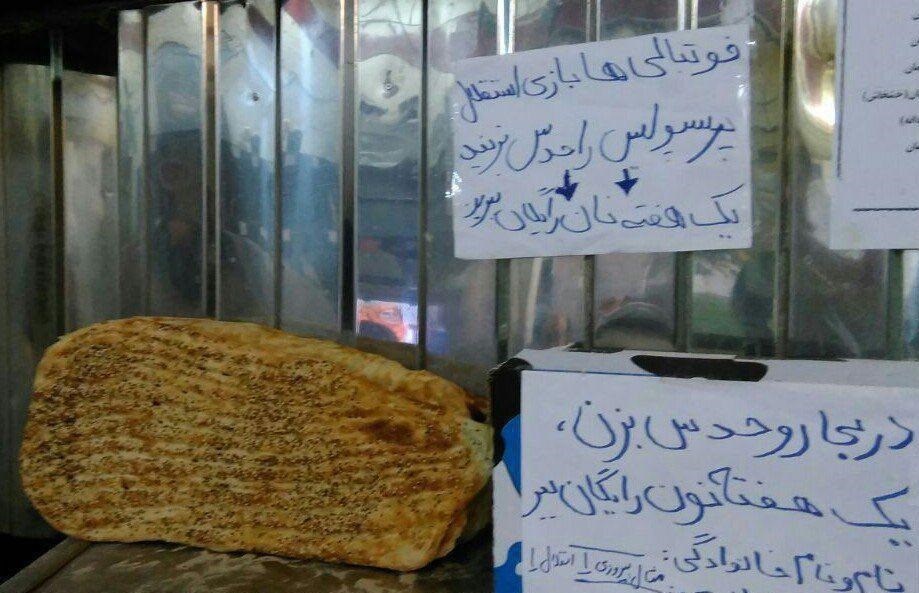 فوتبالی ها بازی استقلال
پرسپولیس را حدس بزنید
یک هفته نان رایگان ببرید
دربی رو حدس بزن،
یک هفته نون رایگان ببر
نام و نام خانوادگی:
مثال پیروزی 1 استقلال 1